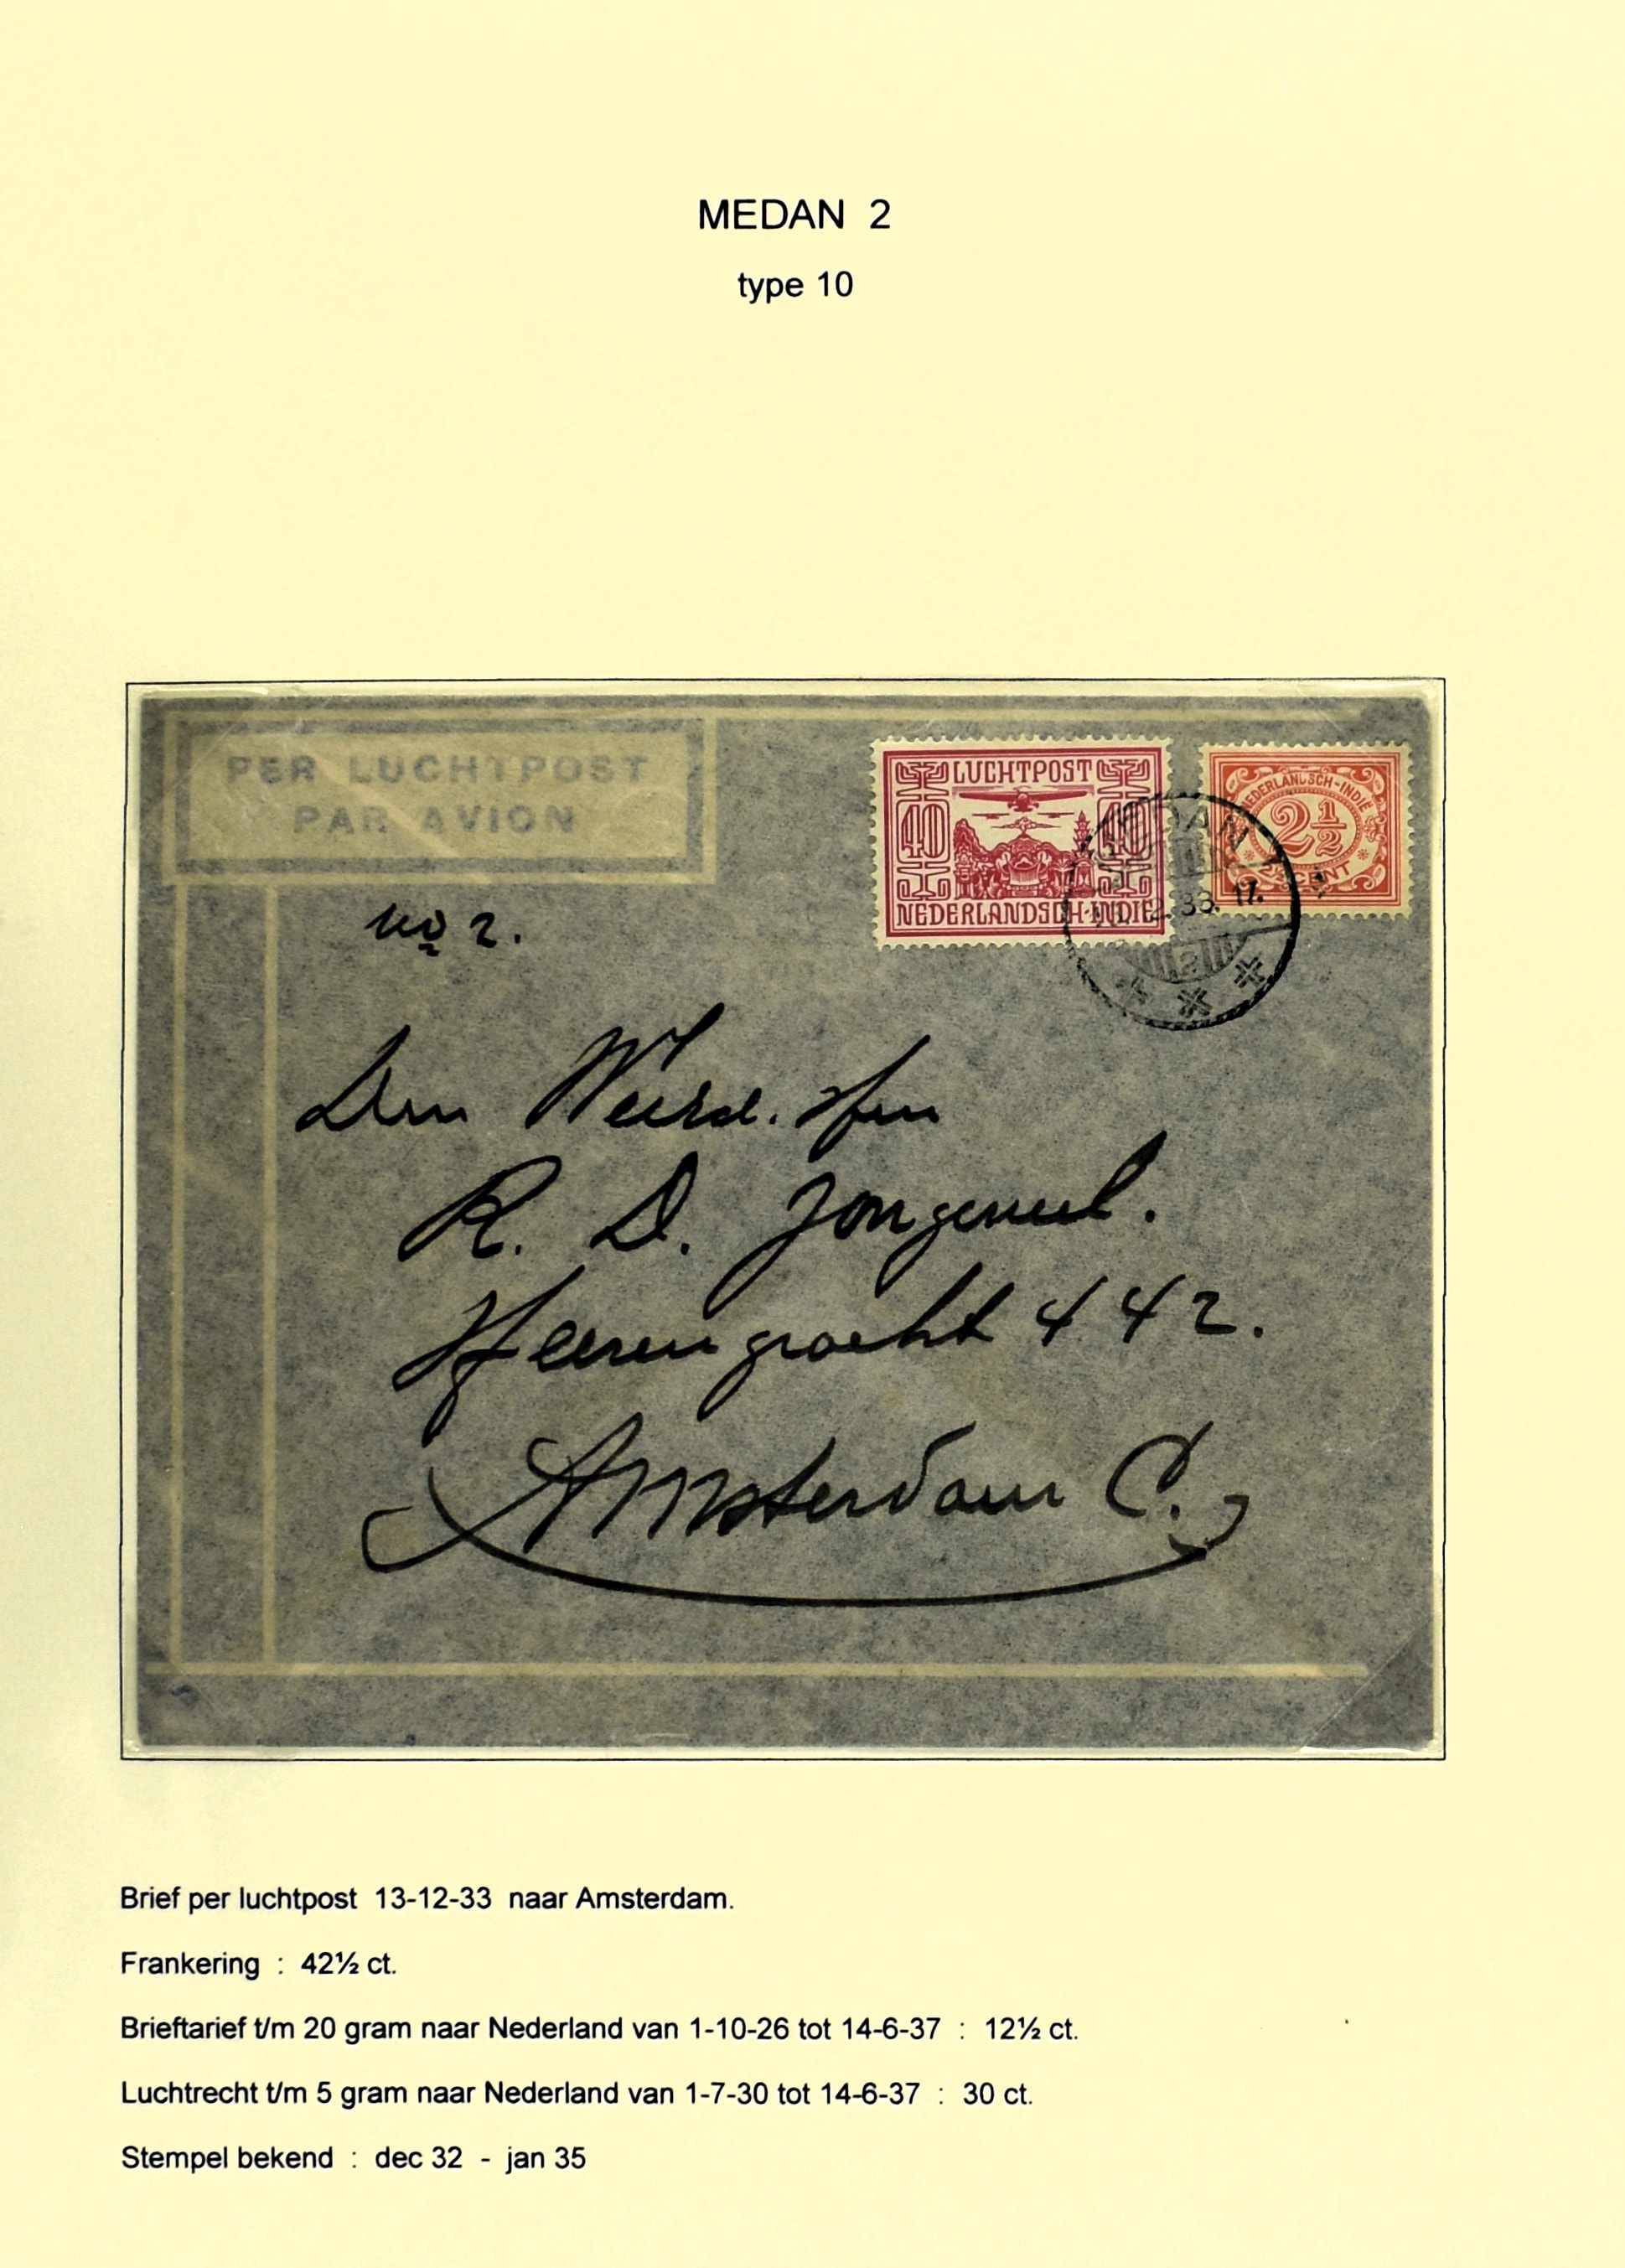 MEDAN 2
type 10
PER LUCHTPOST
PAR AVION
LUCHTPOST
40 40
NEDERLANDSCH-INDIE
NEDERLANDSCH-INDIË
2½
CENT
MEDAN
2.33. 17.
a
No 2.
Den Weird. Heer
R. D. Jongeneel.
Heerengracht 442.
Amsterdam C.
Brief per luchtpost 13-12-33 naar Amsterdam.
Frankering : 42½ ct.
Brieftarief t/m 20 gram naar Nederland van 1-10-26 tot 14-6-37 : 12½ ct.
Luchtrecht t/m 5 gram naar Nederland van 1-7-30 tot 14-6-37 : 30 ct.
Stempel bekend : dec 32 - jan 35